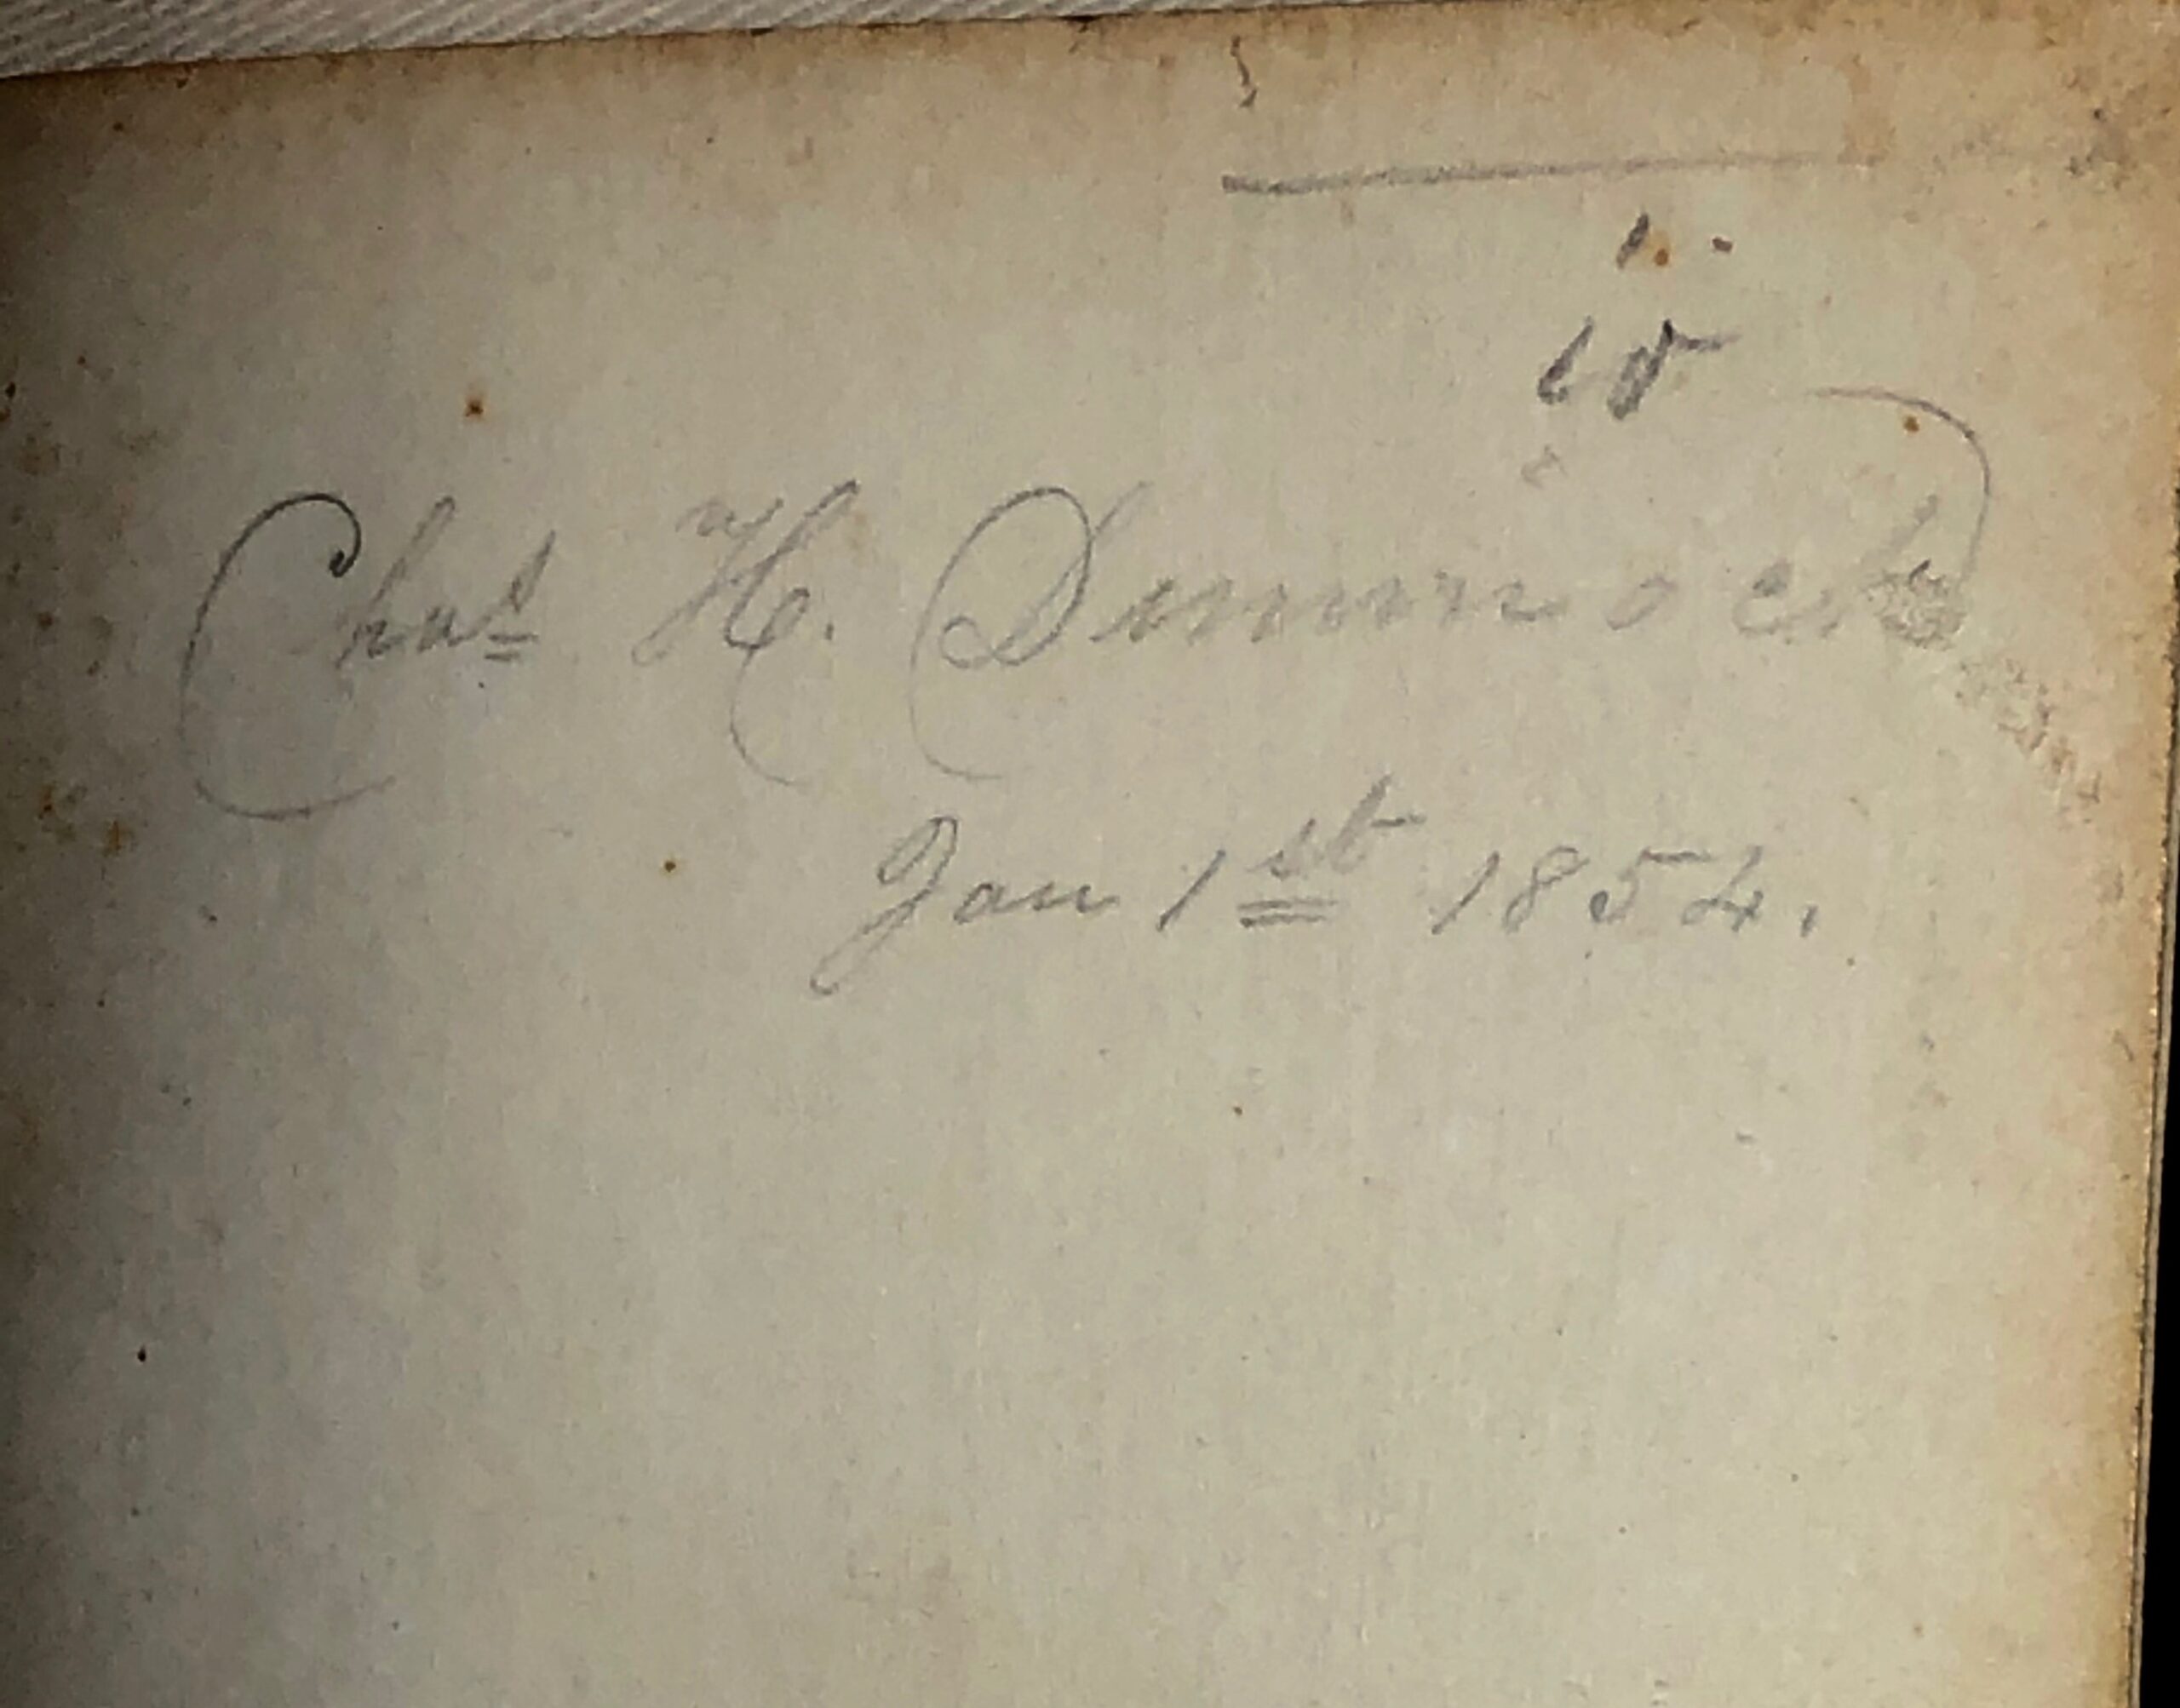 Chas H. Dimmock
Jan 1st 1854.